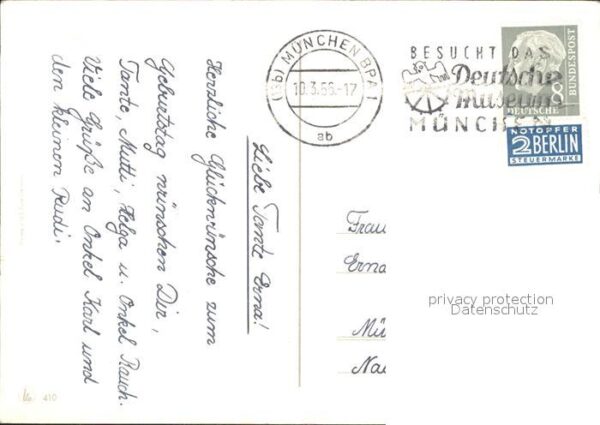 Liebe Tante Erna!
Herzliche Glückwünsche zum
Geburtstag wünschen Dir,
Tante, Mutti, Helga u. Onkel Rauch.
Viele Grüße an Onkel Karl und
den kleinen Rudi.
MÜNCHEN BPA 1
10.3.56.-17
ab
BESUCHT DAS
Deutsche
Museum
MÜNCHEN
8
DEUTSCHE
BUNDESPOST
NOTOPFER
2 BERLIN
STEUERMARKE
Frau
Erna
Mü
Na
privacy protection
Datenschutz
410